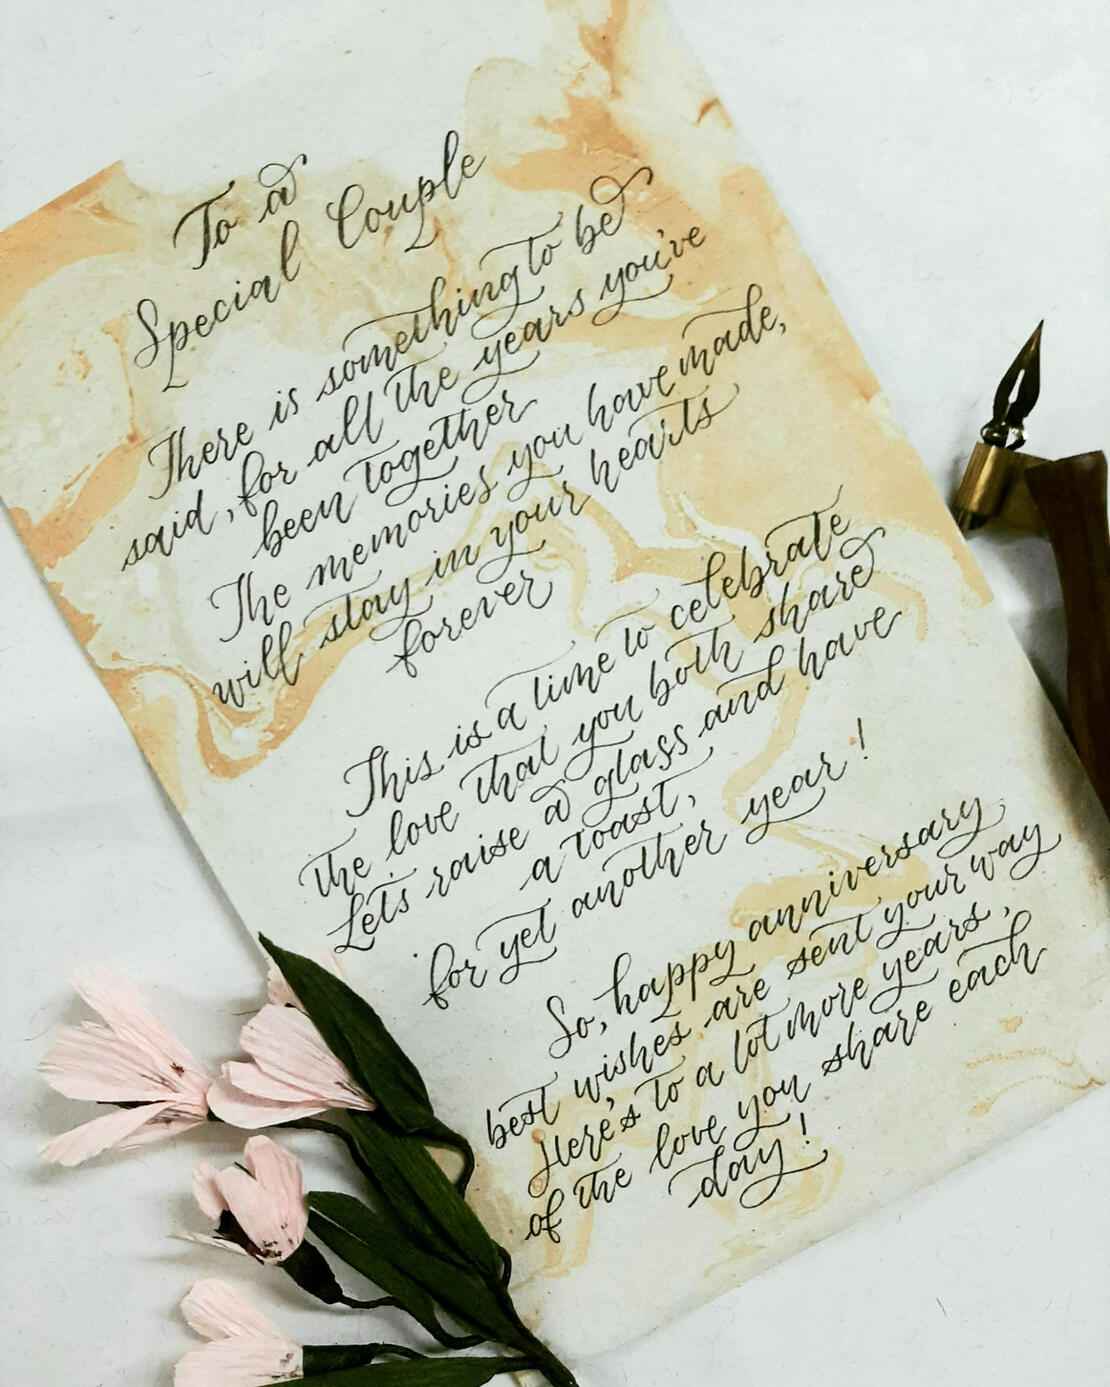 To a
Special Couple
There is something to be
said, for all the years you've
been together
The memories you have made,
will stay in your hearts
forever
This is a time to celebrate
the love that you both share
Let's raise a glass and have
a toast,
for yet another year!
So, happy anniversary
best wishes are sent your way
Here's to a lot more years,
of the love you share each
day!